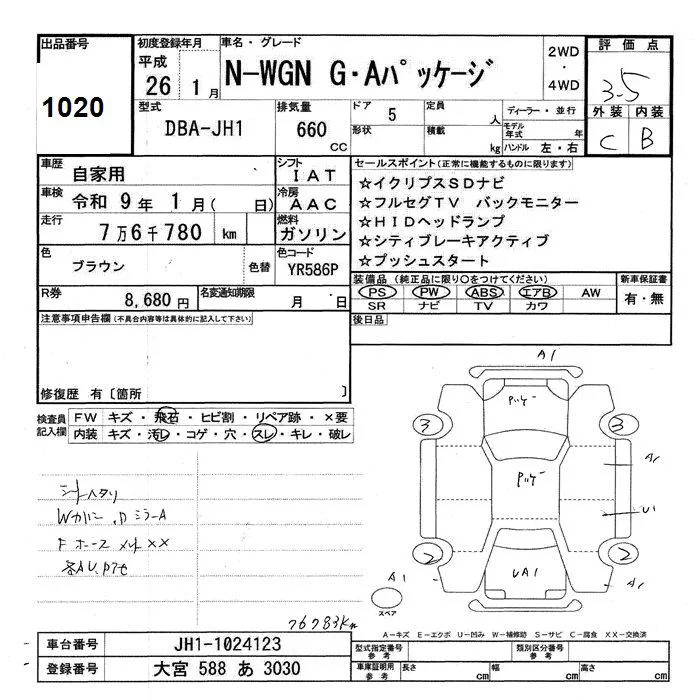 出品番号
1020
初度登録年月
平成
26 1月
車名・グレード
N-WGN G・Aパッケージ
2WD
・
4WD
評価点
3.5
外装 内装
C B
型式
DBA-JH1
排気量
660
CC
ドア 5
形状
定員 人
積載 kg
ディーラー・並行
モデル年式 年
ハンドル 左・右
車歴 自家用
シフト IAT
車検 令和 9年 1月( 日)
冷房 AAC
走行 7万6千780 km
燃料 ガソリン
色 ブラウン 色替
色コード YR586P
R券 8,680円
名変通知期限 月 日
セールスポイント(正常に機能するものに限ります)
☆イクリプスSDナビ
☆フルセグTV バックモニター
☆HIDヘッドランプ
☆シティブレーキアクティブ
☆プッシュスタート
装備品(純正品に限り○をつけてください)
PS PW ABS エアB AW
SR ナビ TV カワ
新車保証書
有・無
後日品
注意事項申告欄(不具合内容等は具体的に記入して下さい)
修復歴 有〔箇所 〕
検査員記入欄
FW キズ・飛石・ヒビ割・リペア跡・×要
内装 キズ・汚レ・コゲ・穴・スレ・キレ・破レ
シートヘタリ
Wカバー
ミラーA
F ホース メント XX
各AU
76783Km
A1
3 3
A1
U1
2 2
UA1
A1
スペア
A-キズ E-エクボ U-凹み W-補修跡 S-サビ C-腐食 XX-交換済
車台番号 JH1-1024123
登録番号 大宮 588 あ 3030
型式指定番号 参考
類別区分番号 参考
車庫証明用 参考
長さ cm 幅 cm 高さ cm